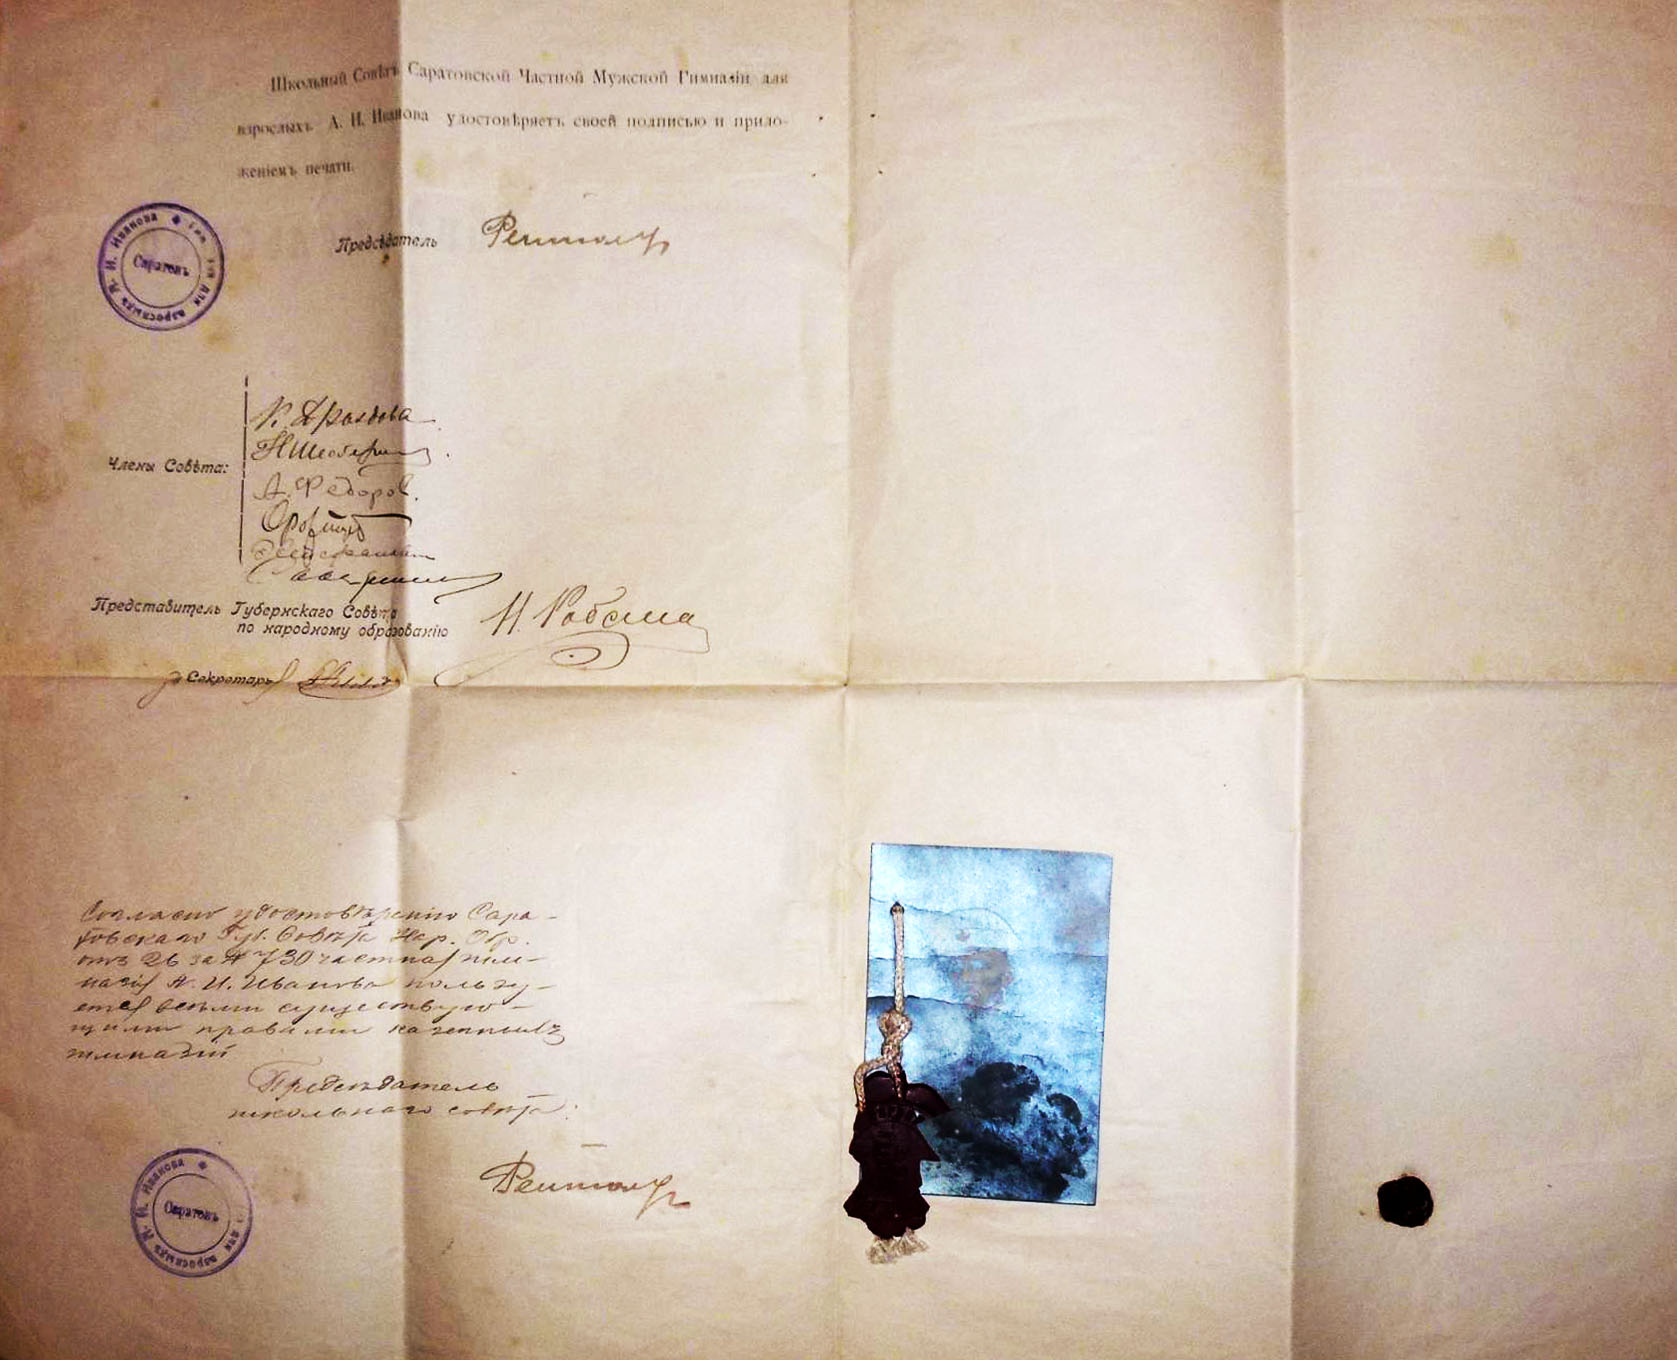 Школьный Совѣтъ Саратовской Частной Мужской Гимназіи для
взрослыхъ А. И. Иванова удостовѣряетъ своей подписью и прило-
женіемъ печати.
А. И. Иванова для взрослыхъ
Саратовъ
Предсѣдатель
К. Дроздова
Члены Совѣта:
А. Федоров.
Представитель Губернскаго Совѣта
по народному образованію
Секретарь
Согласно удостовѣренію Сара-
товскаго Губ. Совѣта Нар. Обр.
отъ 26 за № 730 частная гим-
назія А. И. Иванова пользу-
ется всѣми существую-
щими правами казенныхъ
гимназій
Предсѣдатель
школьнаго совѣта:
А. И. Иванова для взрослыхъ
Саратовъ